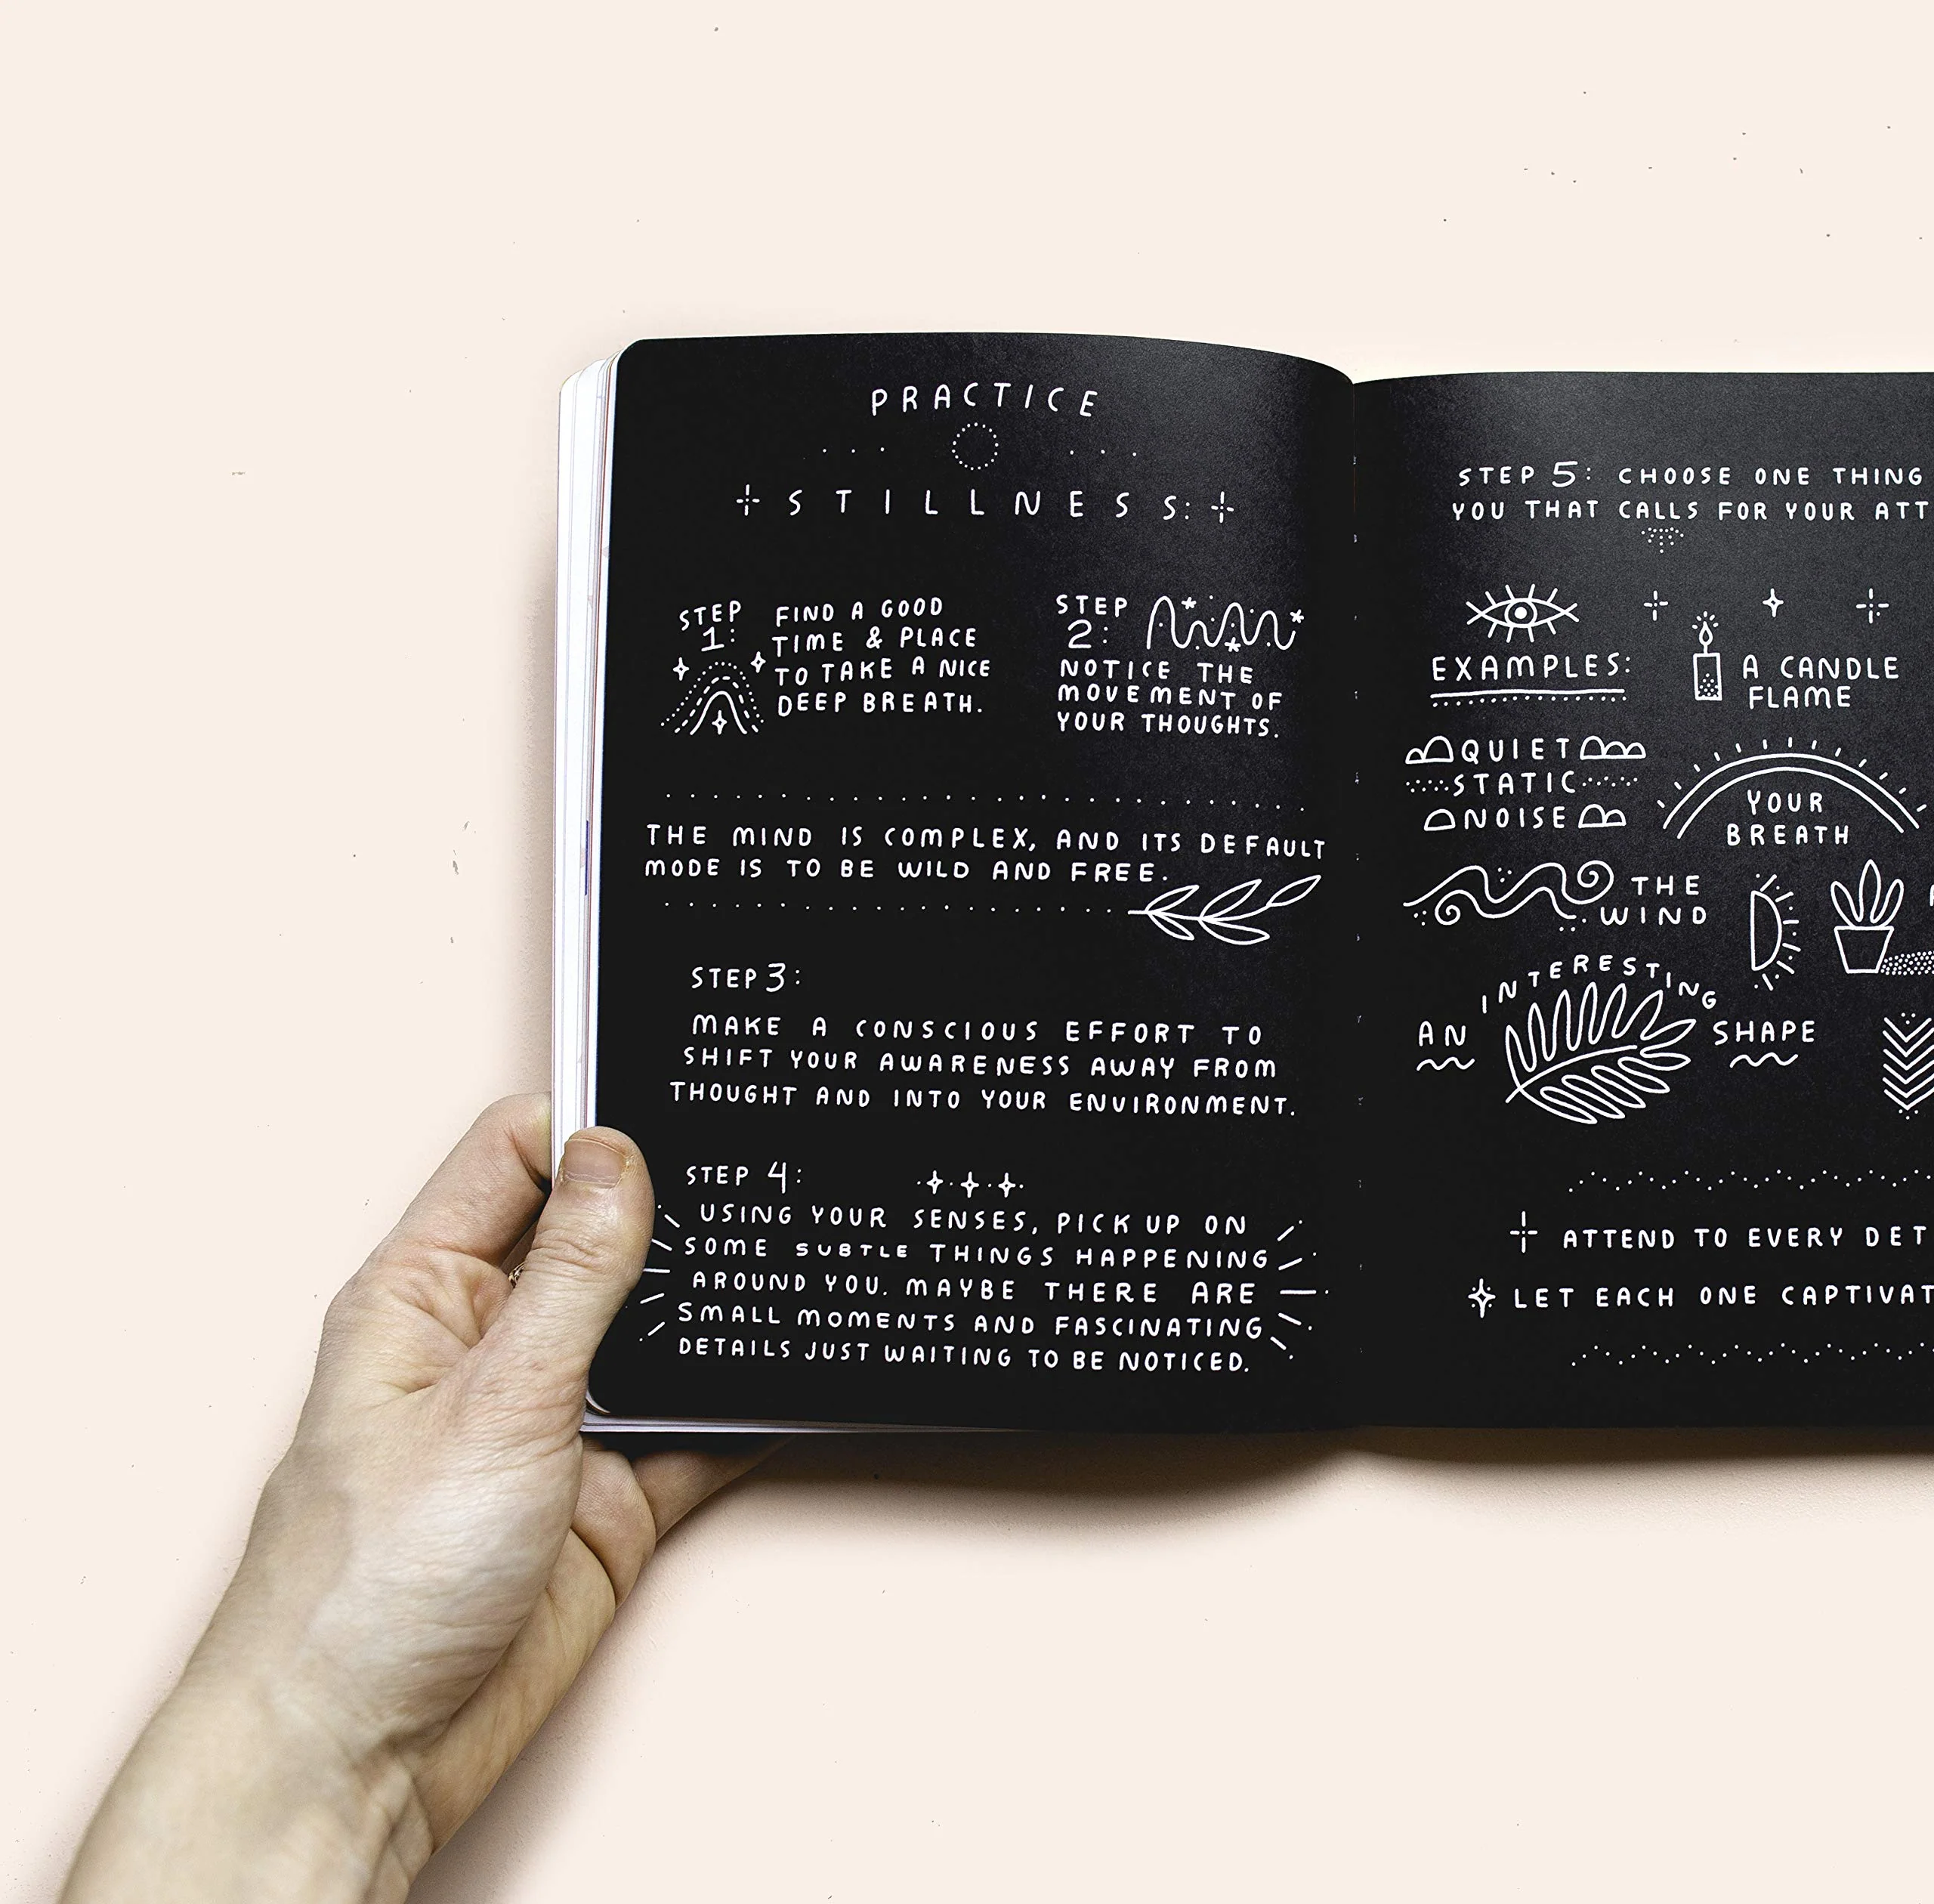 PRACTICE
STILLNESS:
STEP
1:
FIND A GOOD
TIME & PLACE
TO TAKE A NICE
DEEP BREATH.
STEP
2:
NOTICE THE
MOVEMENT OF
YOUR THOUGHTS.
THE MIND IS COMPLEX, AND ITS DEFAULT
MODE IS TO BE WILD AND FREE.
STEP 3:
MAKE A CONSCIOUS EFFORT TO
SHIFT YOUR AWARENESS AWAY FROM
THOUGHT AND INTO YOUR ENVIRONMENT.
STEP 4:
USING YOUR SENSES, PICK UP ON
SOME SUBTLE THINGS HAPPENING
AROUND YOU. MAYBE THERE ARE
SMALL MOMENTS AND FASCINATING
DETAILS JUST WAITING TO BE NOTICED.
STEP 5: CHOOSE ONE THING
YOU THAT CALLS FOR YOUR ATT
EXAMPLES:
A CANDLE
FLAME
QUIET
STATIC
NOISE
YOUR
BREATH
THE
WIND
AN INTERESTING SHAPE
ATTEND TO EVERY DET
LET EACH ONE CAPTIVAT